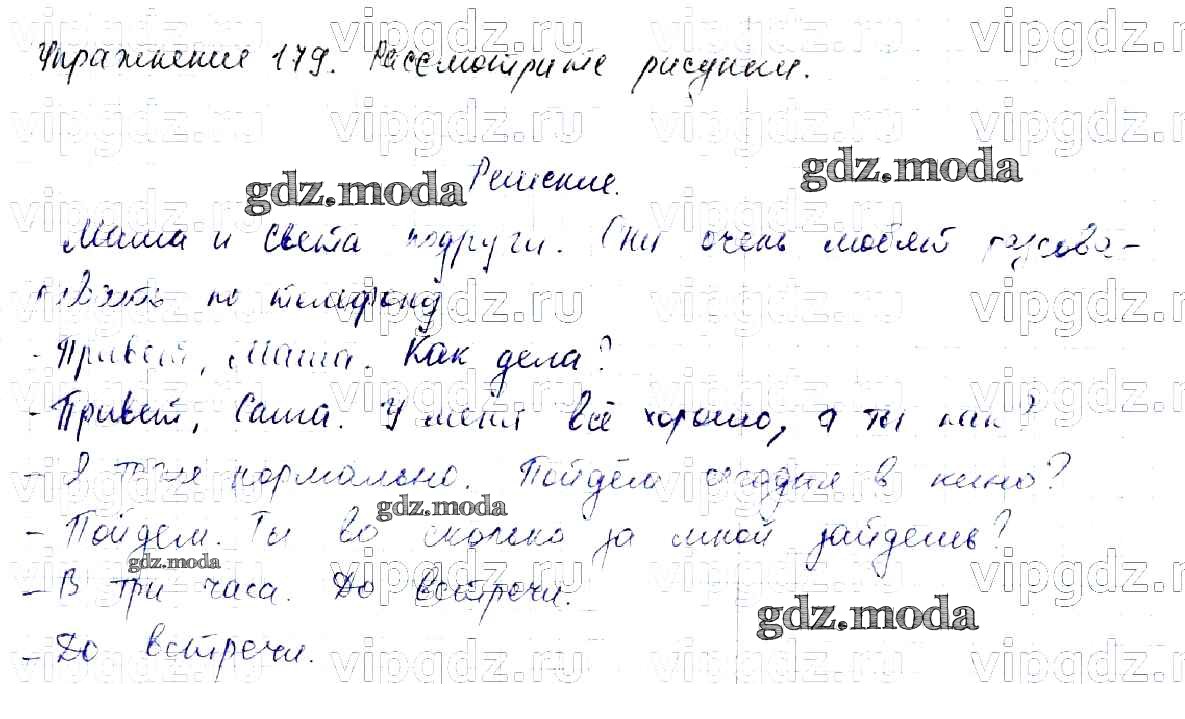 Упражнение 179. Рассмотрите рисунки.
Решение.
Маша и Света подруги. Они очень любят разгова-
ривать по телефону
- Привет, Маша. Как дела?
- Привет, Саша. У меня всё хорошо, а ты как?
- Я тоже нормально. Пойдём сегодня в кино?
- Пойдем. Ты во сколько за мной зайдешь?
- В три часа. До встречи.
- До встречи.
vipgdz.ru
gdz.moda